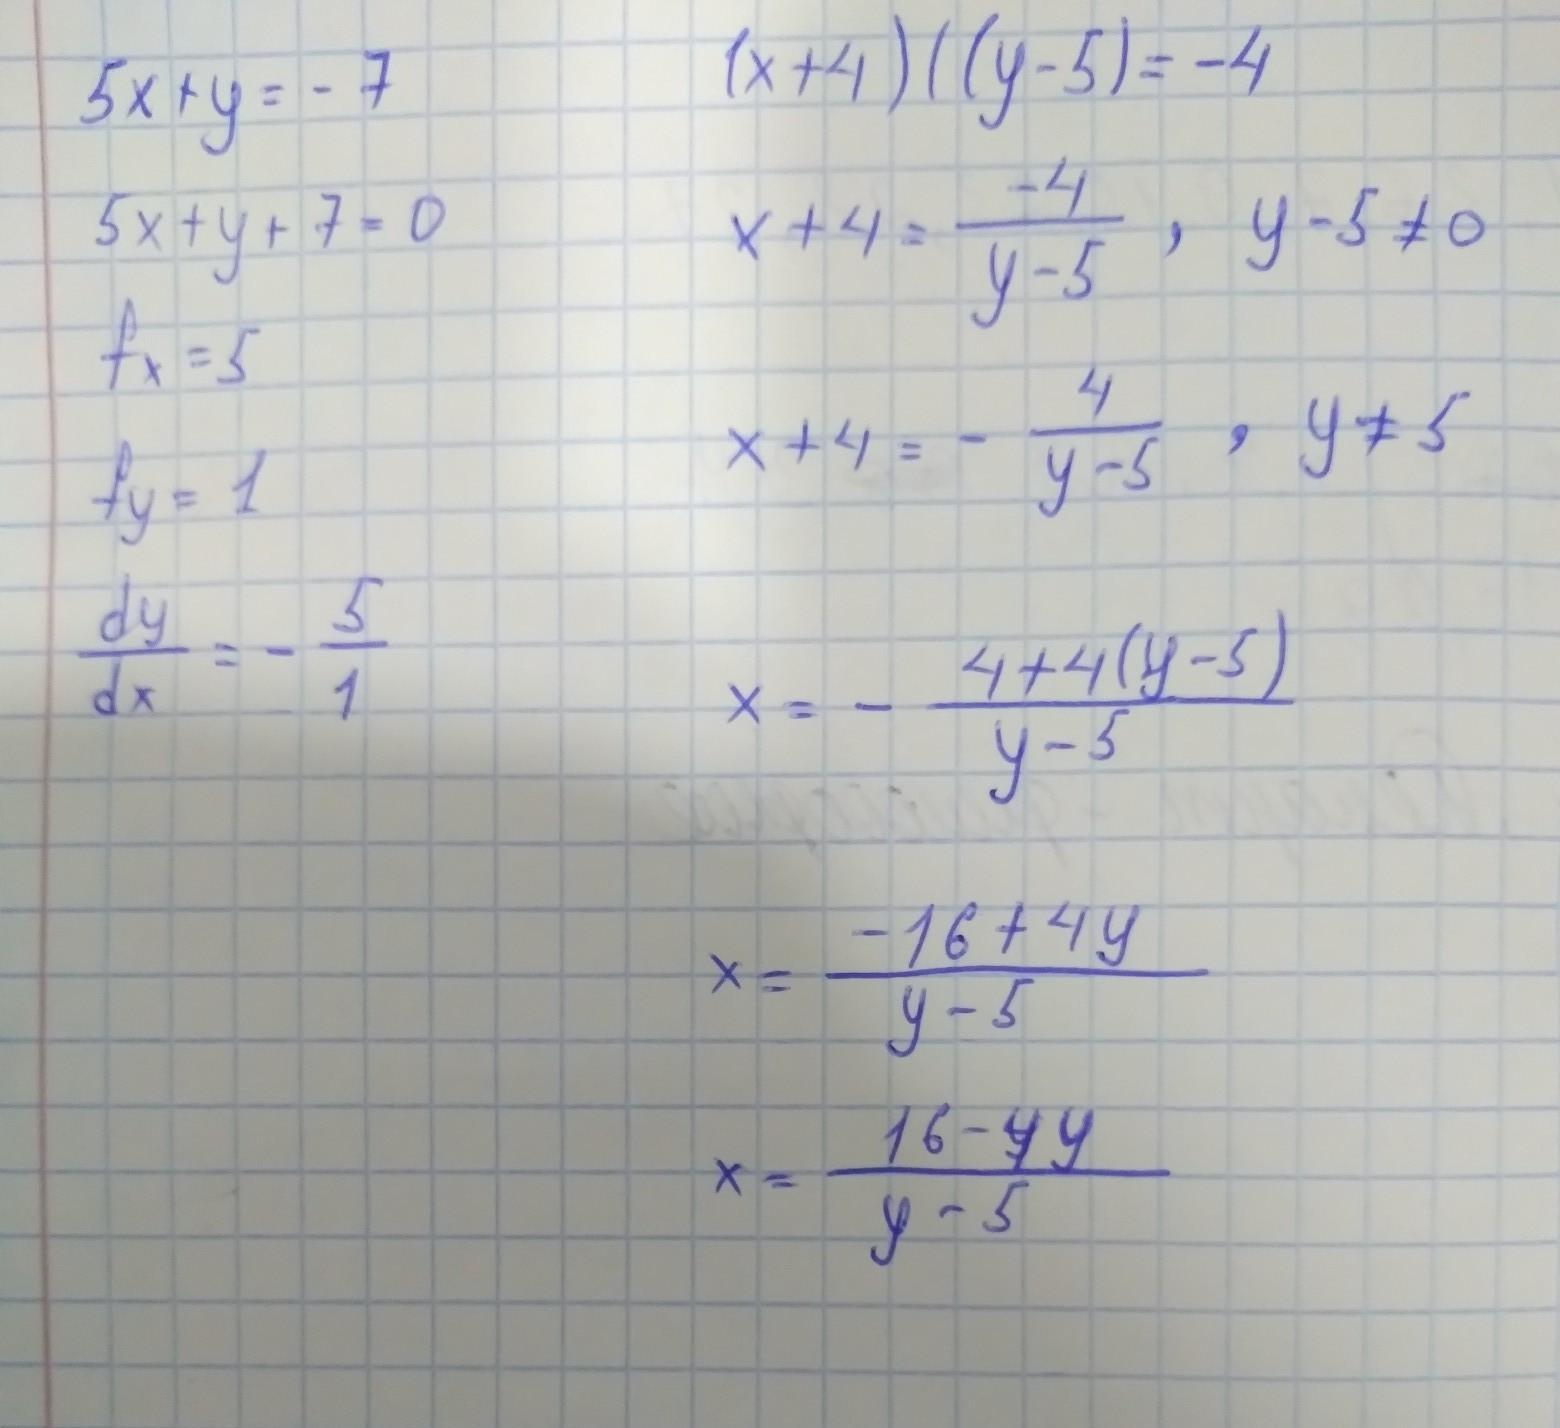 5x+y=-7
5x+y+7=0
fx=5
fy=1
dy/dx=-5/1
(x+4)((y-5)=-4
x+4=-4/y-5, y-5≠0
x+4=-4/y-5, y≠5
x=-4+4(y-5)/y-5
x=-16+4y/y-5
x=16-4y/y-5